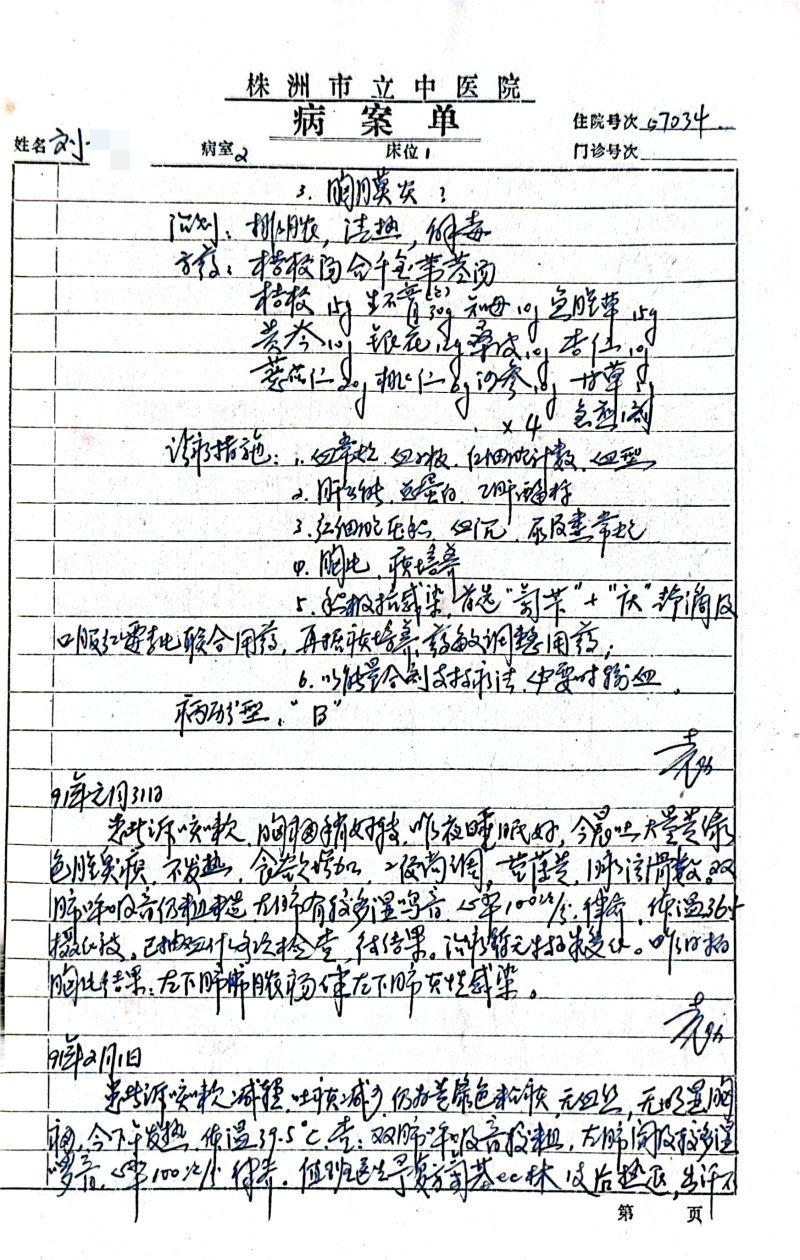 株洲市立中医院
病案单
住院号次 07034
姓名 刘 病室 2 床位 1 门诊号次
3. 胸膜炎?
治则:排脓,清热,解毒
方药:桔梗汤合千金苇茎汤
桔梗15g 生石膏(包)30g 知母10g 鱼腥草15g
黄芩10g 银花 桑皮10g 杏仁10g
薏苡仁20g 桃仁 沙参10g 甘草5g
×4
诊疗措施:1. 血常规、血小板、红细胞计数、血型
2. 肝功能、血蛋白、乙肝
3. 红细胞压积、血沉、尿及粪常规
4. 胸片、痰培养
5. 积极抗感染,首选"菌苄"+"庆"静滴及
口服红霉素 联合用药,再据痰培养、药敏调整用药;
6. 以能量合剂支持疗法,必要时输血。
病历分型:"B"
袁
91年元月31日
患者诉咳嗽、胸痛稍好转,昨夜睡眠好,今晨吐大量黄绿
色腥臭痰,不发热,食欲增加,二便尚调,苔薄黄,脉滑数。双
肺呼吸音仍粗糙,左肺有较多湿鸣音,心率100次/分,律齐,体温36.5
摄氏度。已抽血作各项检查,待结果。治疗暂无特殊变化。昨日拍
胸片结果:左下肺脓疡伴左下肺炎性感染。
袁
91年2月1日
患者诉咳嗽减轻,吐痰减少,仍为黄绿色粘痰,无血丝,无明显胸
痛,今下午发热,体温39.5°C,查:双肺呼吸音较粗,左肺闻及较多湿
啰音,心率100次/分,律齐。值班医生予复方氨基比林 后热退,出汗不
第 页